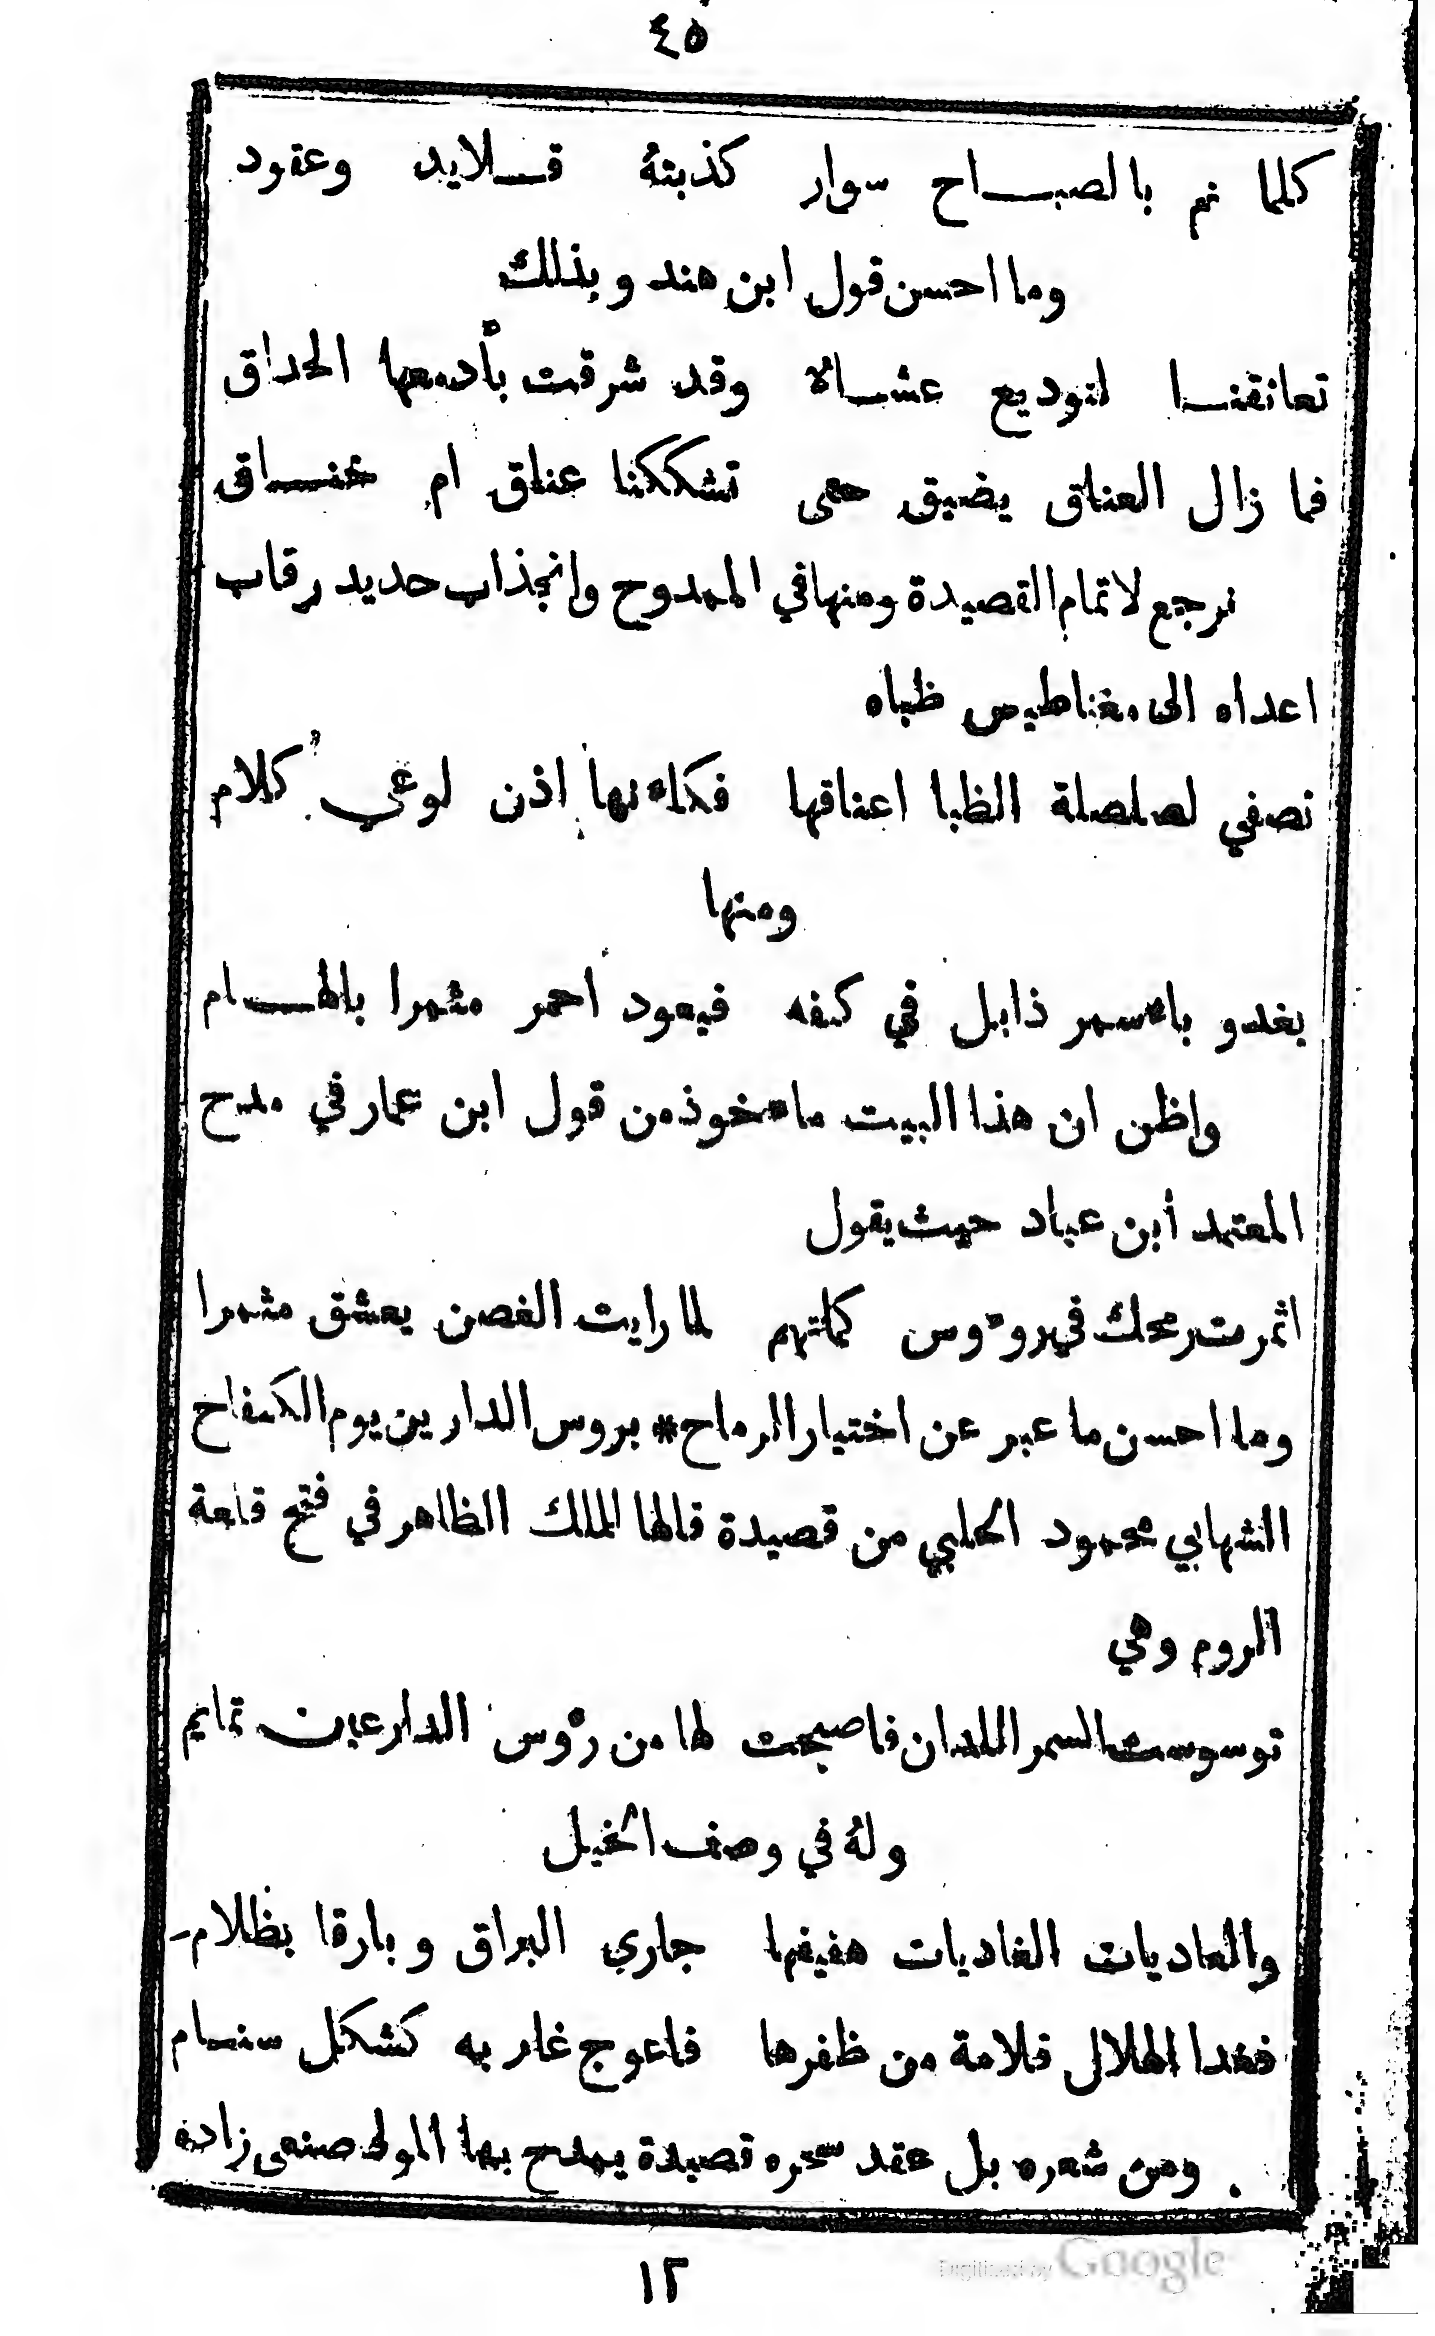 ٤٥
كلما نم بالصباح سوار كذبتهُ قلايد وعقود
وما احسن قول ابن هندو بذلك
تعانقنا لتوديع عشاءً وقد شرقت بأدمعها الحداق
فما زال العناق يضيق حتى تشككنا عناق ام خناق
نرجع لاتمام القصيدة ومنها في الممدوح وانجذاب حديد رقاب
اعداه الى مغناطيس ظباه
تصغي لصلصلة الظبا اعناقها فكاءنها اذن لوعي كلام
ومنها
يغدو باءسمر ذابل في كفه فيعود أحمر مثمرا بالهام
واظن ان هذا البيت ماءخوذ من قول ابن عمار في مدح
المعتمد أبن عباد حيث يقول
اثمرت رمحك في روءوس كماتهم لما رايت الغصن يعشق مثمرا
وما احسن ما عبر عن اختيار الرماح * بروس الدارين يوم الكفاح
الشهابي محمود الحلبي من قصيدة قالها للملك الظاهر في فتح قلعة
الروم وهي
توسوست السمر اللدان فاصبحت لها من رؤس الدارعين تمايم
ولهُ في وصف الخيل
والعاديات الغاديات هفيفها جاري البراق وبارقا بظلام
فغدا الهلال قلامة من ظفرها فاعوج غاربه كشكل سنام
ومن شعره بل عقد سحره قصيدة يمدح بها المولى صنعى زاده
١٢
Digitized by Google